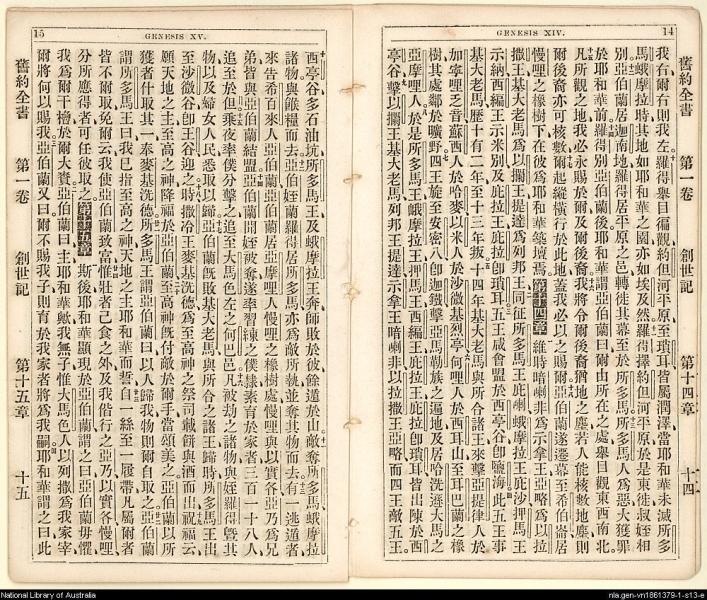 GENESIS XIV.
14
舊約全書 第一卷 創世記 第十四章 十四
我右爾右則我左羅得舉目徧觀約但河平原至瑣耳皆屬潤澤當耶和華未滅所多
馬蛾摩拉時其地如耶和華之園亦如埃及然羅得擇約但河平原於是東徙叔姪相
別亞伯蘭居迦南地羅得居平原之邑轉徙其幕至於所多馬所多馬人爲惡大獲罪
於耶和華前羅得別亞伯蘭後耶和華謂亞伯蘭曰爾由所在之處舉目觀東西南北
凡所觀之地我必永賜於爾及爾後裔我將令爾後裔猶地之塵若人能核數地塵則
爾後裔亦可核數爾起縱橫行於此地蓋我必以之賜爾亞伯蘭遂遷幕至希伯崙居
慢哩之橡樹下在彼爲耶和華築壇焉第十四章維時暗喇非爲示拿王亞略爲以拉
撒王基大老馬爲以攔王提達爲列邦王同征所多馬王庇喇蛾摩拉王庇沙押馬王
示納西編王示米別及庇拉王庇拉卽瑣耳五王咸會盟於西亭谷卽鹽海此五王事
基大老馬歷十有二年至十三年叛十四年基大老馬與所合諸王來擊亞提律人於
加寧哩乏音蘇西人於哈麥以米人於沙微基烈亭何哩人於西耳山至耳巴蘭之橡
樹其處鄰於曠野四王旋至安密八卽迦鐵擊亞馬勒族之遍地及居哈洗遜大馬之
亞摩哩人於是所多馬王蛾摩拉王押馬王西編王庇拉王庇拉卽瑣耳皆出陳於西
亭谷擊以攔王基大老馬列邦王提達示拿王暗喇非以拉撒王亞略而四王敵五王
GENESIS XV.
15
西亭谷多石油坑所多馬王及蛾摩拉王奔師敗於彼餘遁於山敵奪所多馬蛾摩拉
諸物與餱糧而去亞伯蘭姪羅得居所多馬亦爲敵所執並奪其物而去有一逃遁者
來告希百來人亞伯蘭亞伯蘭居亞摩哩人慢哩之橡處慢哩與以實各亞乃爲兄
弟皆與亞伯蘭結盟亞伯蘭聞姪被奪遂率習練之僕隸素育於家者三百一十八人
追至於但乘夜率僕分擊之追至大馬色左之何巴邑凡被劫之諸物與姪羅得曁其
物以及婦女人民悉取以歸亞伯蘭旣敗基大老馬與所合之諸王歸時所多馬王出
至沙微谷卽王谷迎之時撒冷王麥基洗德爲至高神之祭司載餅與酒而出祝福云
願天地之主至高之神降福於亞伯蘭至高神旣付敵於爾手當頌美之亞伯蘭以所
獲者什取其一奉麥基洗德所多馬王謂亞伯蘭曰以人歸我物則爾自取之亞伯蘭
謂所多馬王曰我已指至高之神天地之主耶和華而誓自一絲至一履帶凡屬爾者
皆不爾取免爾云我使亞伯蘭致富惟壯者已食之外及我偕行之亞乃以實各慢哩
分所應得者可任彼取之第十五章斯後耶和華顯現於亞伯蘭謂之曰亞伯蘭毋懼
我爲爾干櫓於爾大賚亞伯蘭曰主耶和華歟我無子惟大馬色人以列撒爲我家宰
爾將何以賜我亞伯蘭又曰爾不賜我子則育於我家者將爲我嗣耶和華謂之曰此
舊約全書 第一卷 創世記 第十五章 十五
National Library of Australia
nla.gen-vn1861379-1-s13-e